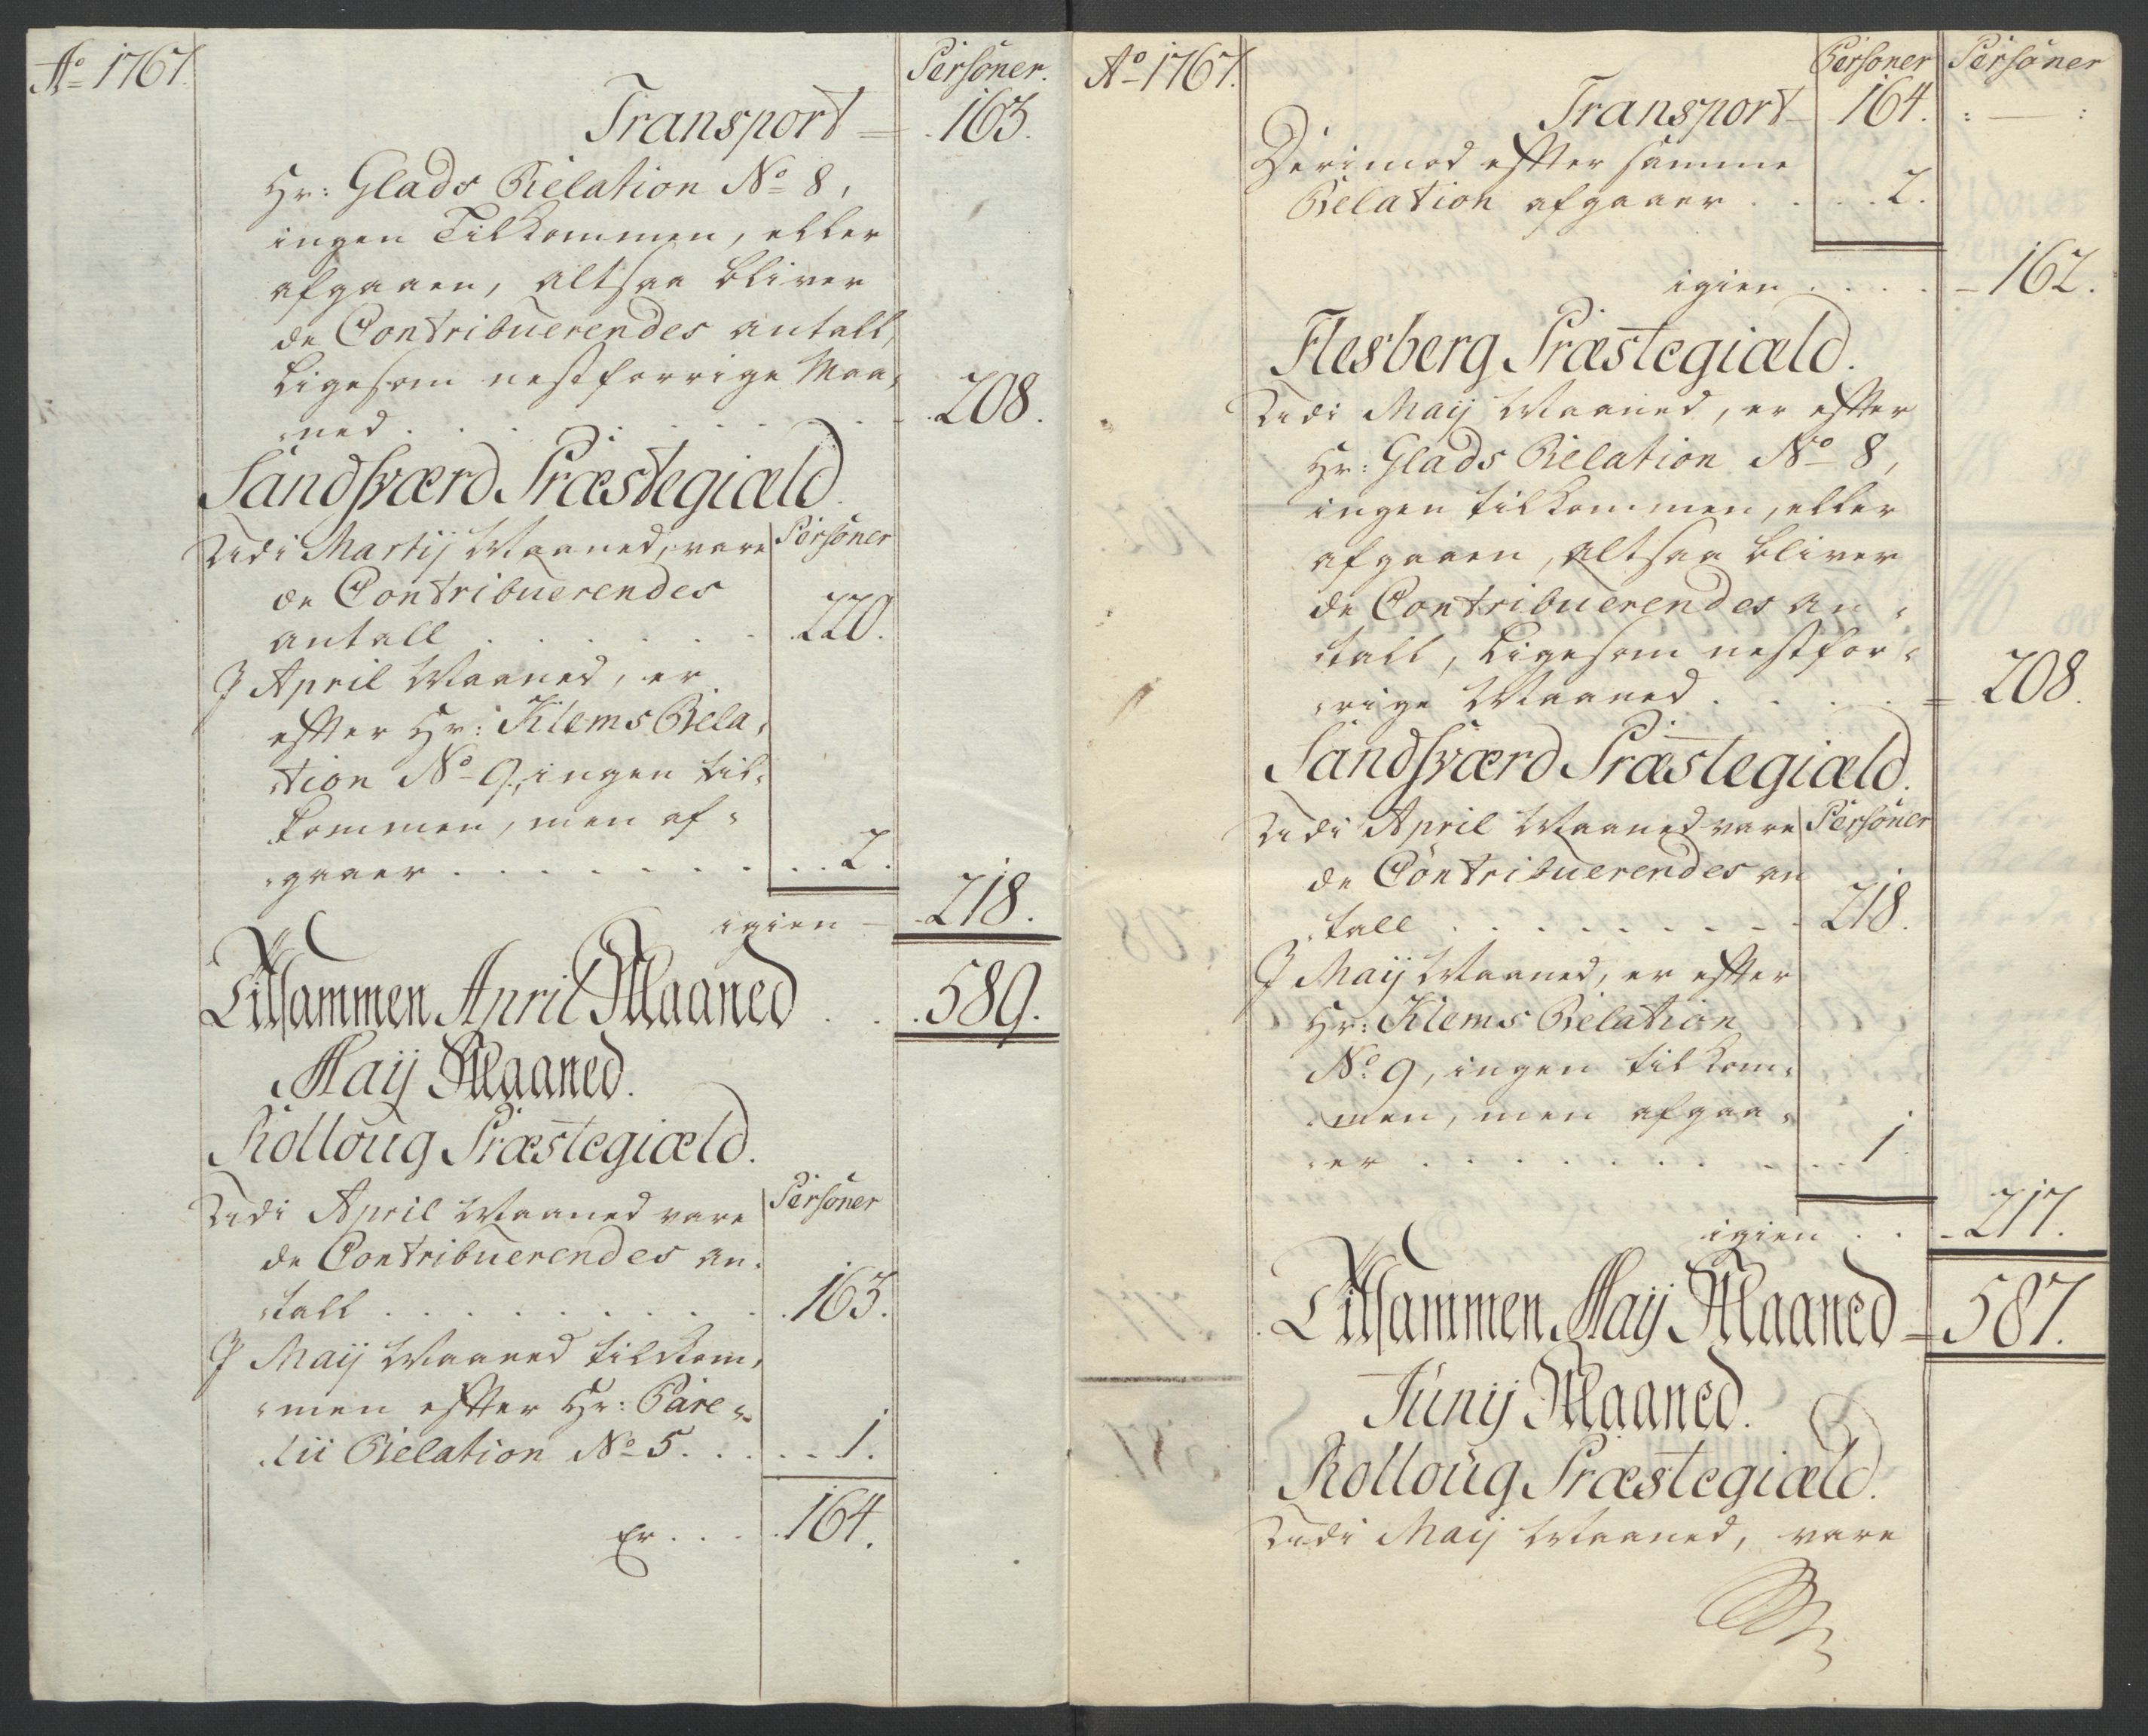 Ao 1767.
Personer.
Transport — 163.
Hr: Glads Relation No 8,
ingen Tilkommen, eller
afgaaen, altsaa bliver
de Contribuerendes antall,
ligesom nestforrige Maa,
ned . . . . . . . . 208.
Sandsværd Præstegiæld.
Udi Martij Maaned, vare Personer
de Contribuerendes
antall . . . . . . 220.
J April Maaned, er
effter Hr: Klems Rela,
tion No 9, ingen til,
kommen, men af,
gaaer . . . . . . . . 2.
igien — 218.
Tilsammen April Maaned . . 589.
Maij Maaned.
Rolloug Præstegiæld.
Udi April Maaned vare Personer
de Contribuerendes an,
tall . . . . . . . . 163.
J Maij Maaned tilkom,
men effter Hr: Pare,
lii Relation No 5 . . . . 1.
Er . . . 164.
Ao 1767.
Personer Personer
Transport — 164. : — :
Derimod effter samme
Relation afgaaer . . . . 2.
igien . . . . 162.
Flesberg Præstegiæld.
Udi Maij Maaned, er effter
Hr: Glads Relation No 8,
ingen tilkommen, eller
afgaaen, altsaa bliver
de Contribuerendes an,
tall, ligesom nestfor,
rige Maaned . . . . 208.
Sandsværd Præstegiæld.
Udi April Maaned vare Personer
de Contribuerendes an
tall . . . . . . . . 218.
J Maij Maaned, er effter
Hr: Klems Relation
No 9, ingen tilkom,
men, men afgaa,
er . . . . . . . . 1.
igien . . . 217.
Tilsammen Maij Maaned — 587.
Junij Maaned.
Rolloug Præstegiæld.
Udi Maij Maaned, vare